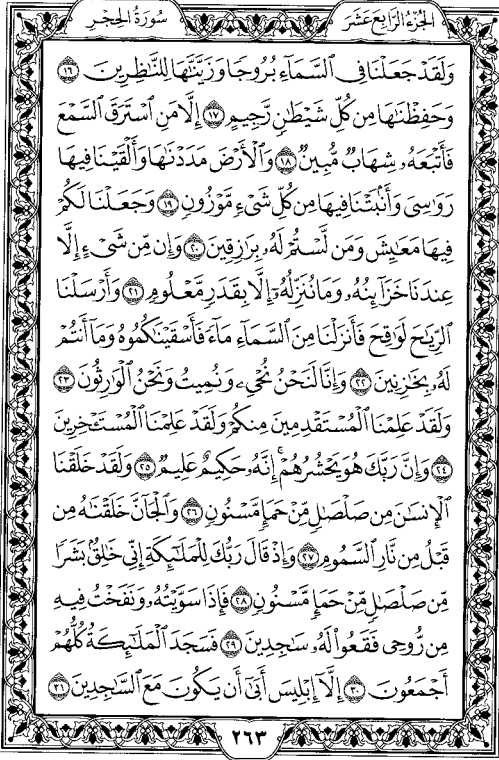 الجزء الرابع عشر
سورة الحجر
وَلَقَدْ جَعَلْنَا فِي السَّمَآءِ بُرُوجًا وَزَيَّنَّٰهَا لِلنَّٰظِرِينَ ١٦
وَحَفِظْنَٰهَا مِن كُلِّ شَيْطَٰنٍ رَّجِيمٍ ١٧ إِلَّا مَنِ ٱسْتَرَقَ ٱلسَّمْعَ
فَأَتْبَعَهُۥ شِهَابٌ مُّبِينٌ ١٨ وَٱلْأَرْضَ مَدَدْنَٰهَا وَأَلْقَيْنَا فِيهَا
رَوَٰسِىَ وَأَنۢبَتْنَا فِيهَا مِن كُلِّ شَىْءٍ مَّوْزُونٍ ١٩ وَجَعَلْنَا لَكُمْ
فِيهَا مَعَٰيِشَ وَمَن لَّسْتُمْ لَهُۥ بِرَٰزِقِينَ ٢٠ وَإِن مِّن شَىْءٍ إِلَّا
عِندَنَا خَزَآئِنُهُۥ وَمَا نُنَزِّلُهُۥٓ إِلَّا بِقَدَرٍ مَّعْلُومٍ ٢١ وَأَرْسَلْنَا
ٱلرِّيَٰحَ لَوَٰقِحَ فَأَنزَلْنَا مِنَ ٱلسَّمَآءِ مَآءً فَأَسْقَيْنَٰكُمُوهُ وَمَآ أَنتُمْ
لَهُۥ بِخَٰزِنِينَ ٢٢ وَإِنَّا لَنَحْنُ نُحْىِۦ وَنُمِيتُ وَنَحْنُ ٱلْوَٰرِثُونَ ٢٣
وَلَقَدْ عَلِمْنَا ٱلْمُسْتَقْدِمِينَ مِنكُمْ وَلَقَدْ عَلِمْنَا ٱلْمُسْتَـْٔخِرِينَ
٢٤ وَإِنَّ رَبَّكَ هُوَ يَحْشُرُهُمْ ۚ إِنَّهُۥ حَكِيمٌ عَلِيمٌ ٢٥ وَلَقَدْ خَلَقْنَا
ٱلْإِنسَٰنَ مِن صَلْصَٰلٍ مِّنْ حَمَإٍ مَّسْنُونٍ ٢٦ وَٱلْجَآنَّ خَلَقْنَٰهُ مِن
قَبْلُ مِن نَّارِ ٱلسَّمُومِ ٢٧ وَإِذْ قَالَ رَبُّكَ لِلْمَلَٰٓئِكَةِ إِنِّى خَٰلِقٌۢ بَشَرًا
مِّن صَلْصَٰلٍ مِّنْ حَمَإٍ مَّسْنُونٍ ٢٨ فَإِذَا سَوَّيْتُهُۥ وَنَفَخْتُ فِيهِ
مِن رُّوحِى فَقَعُوا۟ لَهُۥ سَٰجِدِينَ ٢٩ فَسَجَدَ ٱلْمَلَٰٓئِكَةُ كُلُّهُمْ
أَجْمَعُونَ ٣٠ إِلَّآ إِبْلِيسَ أَبَىٰٓ أَن يَكُونَ مَعَ ٱلسَّٰجِدِينَ ٣١
٢٦٣